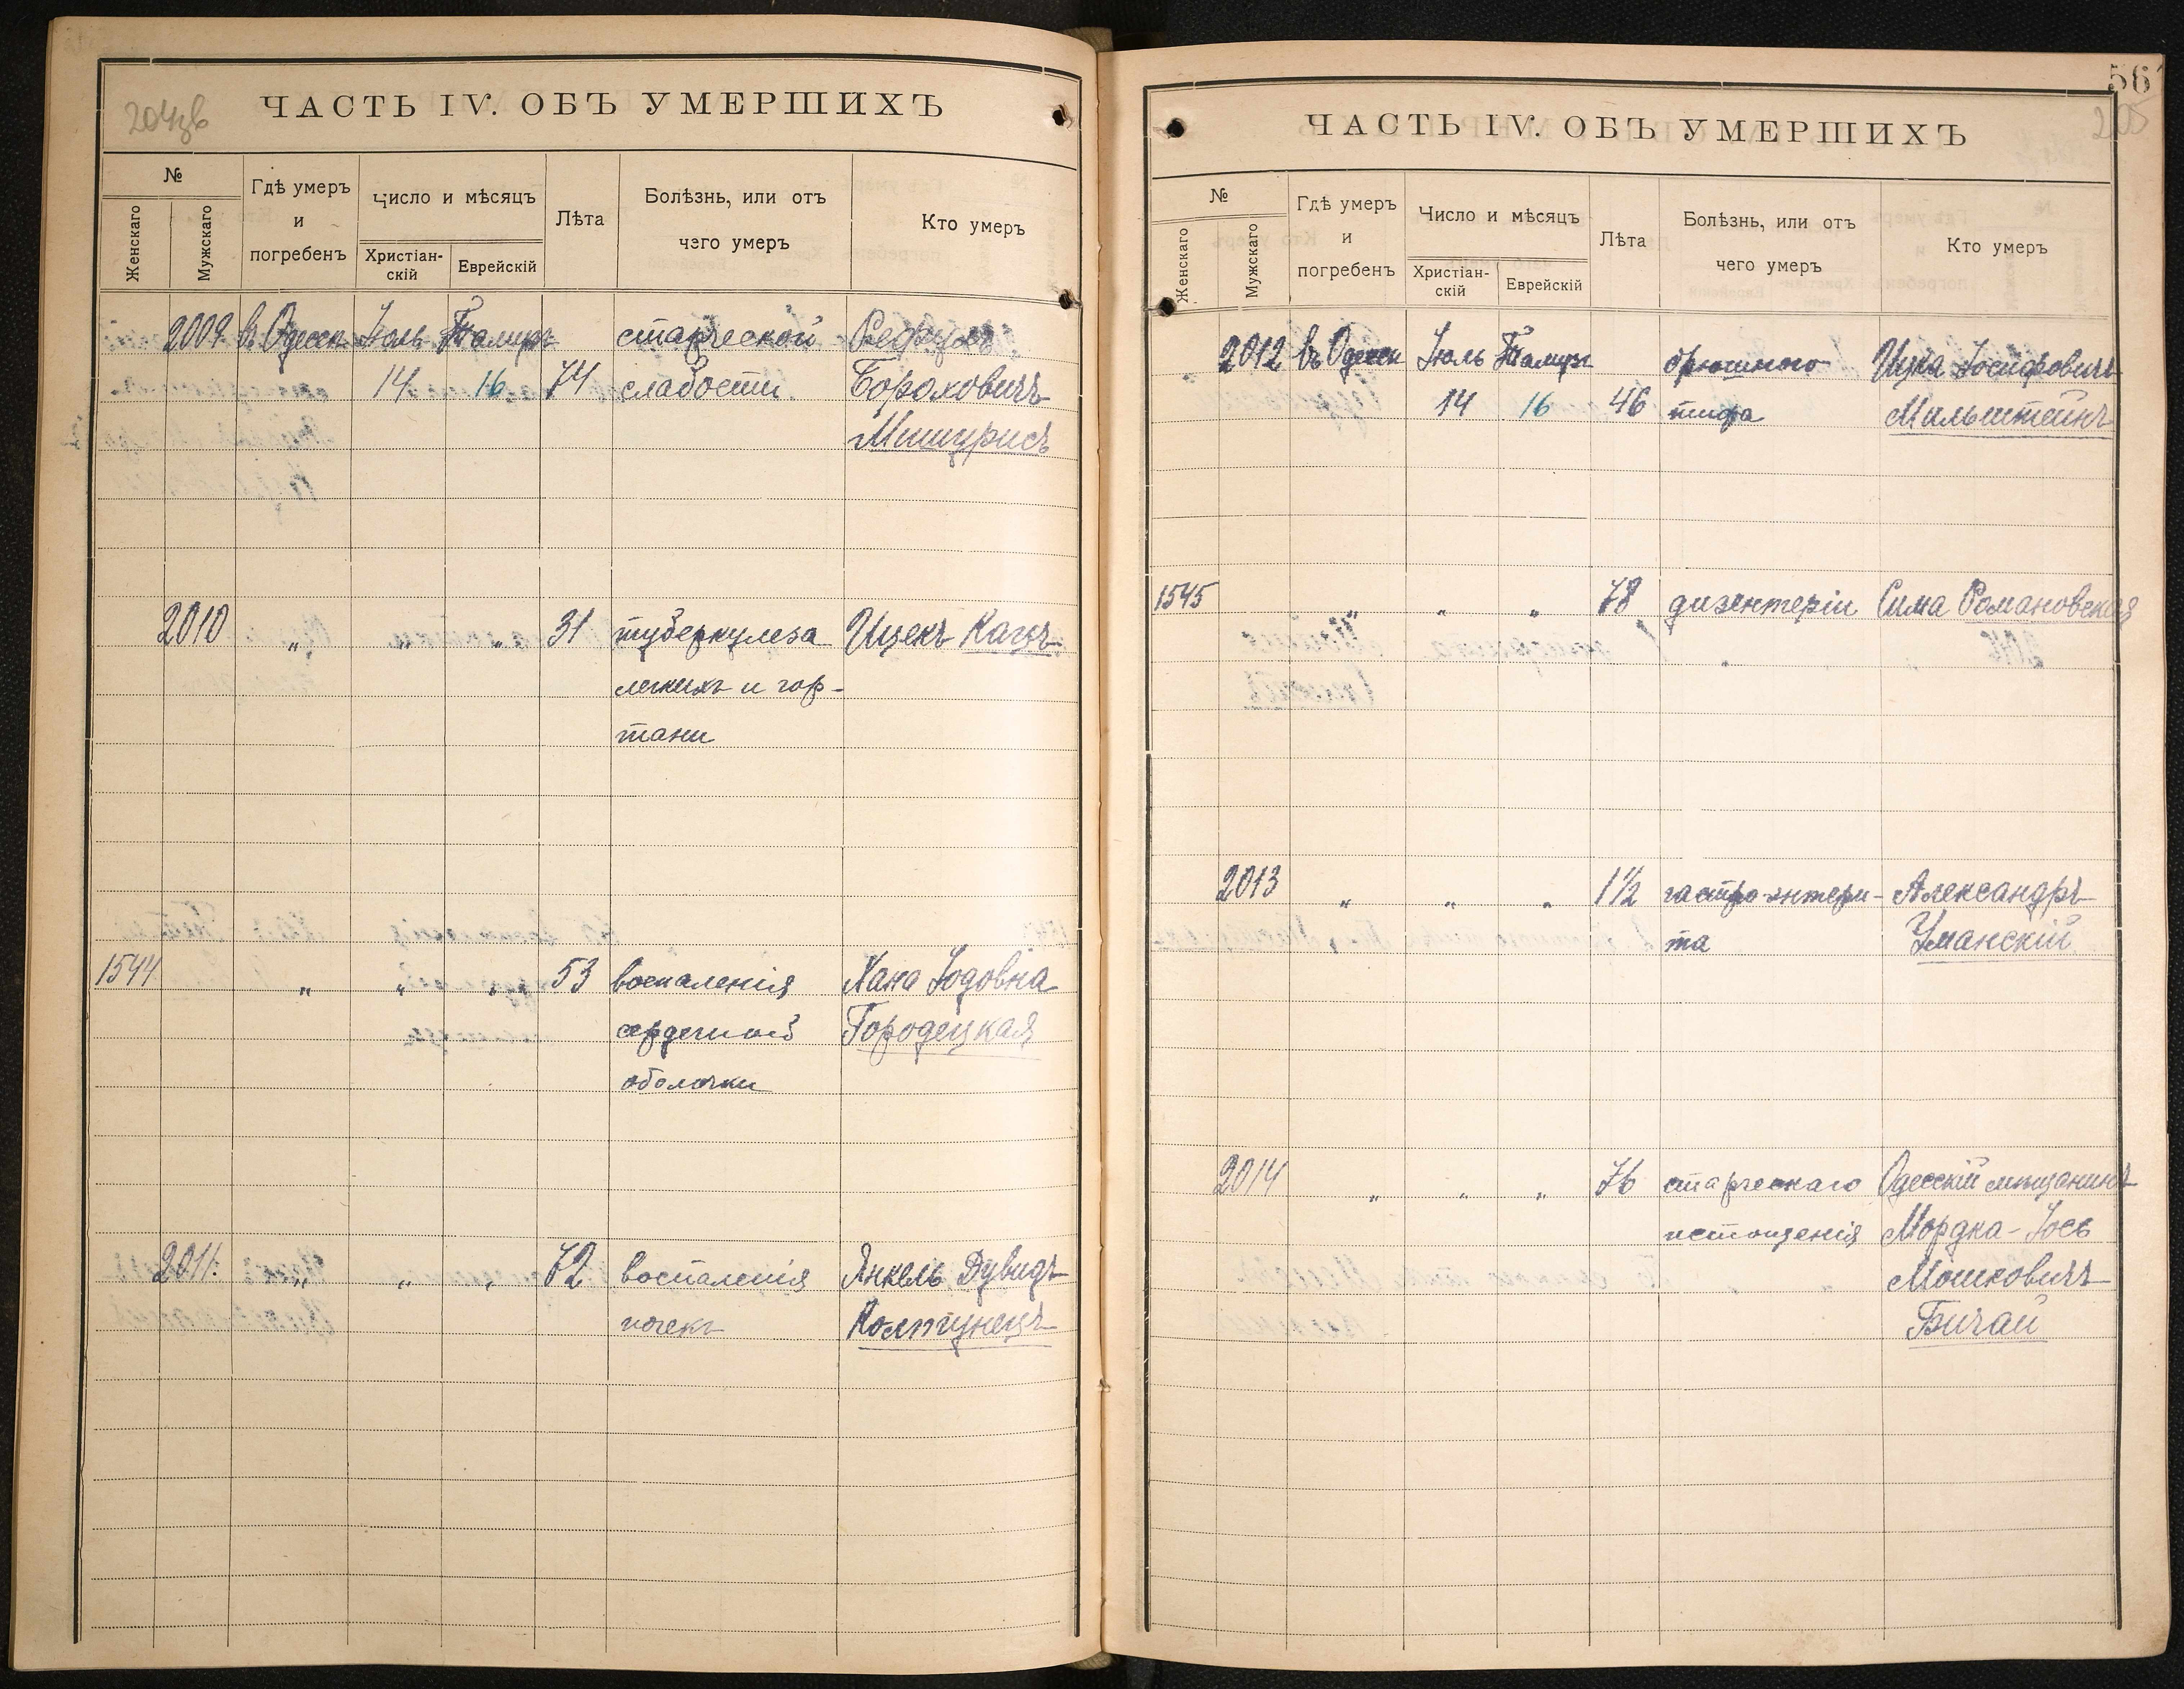 204зв
ЧАСТЬ IV. ОБЪ УМЕРШИХЪ
№
Женскаго
Мужскаго
Гдѣ умеръ
и
погребенъ
Число и мѣсяцъ
Христіан-
скій
Еврейскій
Лѣта
Болѣзнь, или отъ
чего умеръ
Кто умеръ
2009 въ Одессѣ Іюль Тамузъ старческой
14 16 74 слабости Бороховичъ
Мишурисъ
2010 „ „ „ 31 туберкулеза Ицекъ Кацъ
легкихъ и гор-
тани
1544 „ „ „ 53 воспаленія Хана Юдовна
сердечной Городецкая
оболочки
2011. „ „ „ 72 воспаленія Янкель Дувидъ
почекъ Колтунецъ
56
205
ЧАСТЬ IV. ОБЪ УМЕРШИХЪ
№
Женскаго
Мужскаго
Гдѣ умеръ
и
погребенъ
Число и мѣсяцъ
Христіан-
скій
Еврейскій
Лѣта
Болѣзнь, или отъ
чего умеръ
Кто умеръ
2012 въ Одессѣ Іюль Тамузъ брюшного Ицка Іосифовичъ
14 16 46 тифа Мильштейнъ
1545 „ „ „ 78 дизентеріи Сима Романовская
2013 „ „ „ 1½ гастро-энтери- Александръ
та Уманскій
2014 „ „ „ 76 старческаго Одесскій мѣщанинъ
истощенія Мордка-Іось
Мошковичъ
Бичай